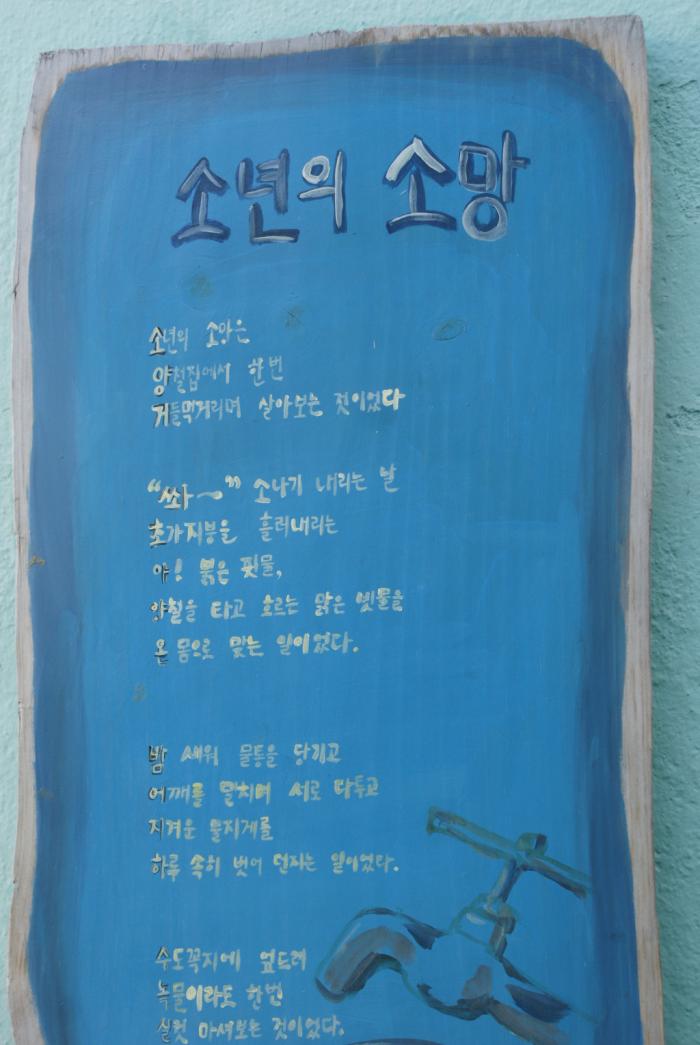 소년의 소망
소년의 소망은
양철집에서 한번
거들먹거리며 살아보는 것이었다
"쏴~" 소나기 내리는 날
초가지붕을 흘러내리는
야! 붉은 핏물,
양철을 타고 흐르는 맑은 빗물을
온 몸으로 맞는 일이었다.
밤 세워 물통을 당기고
어깨를 밀치며 서로 다투고
지겨운 물지게를
하루 속히 벗어 던지는 일이었다.
수도꼭지에 엎드려
녹물이라도 한번
실컷 마셔보는 것이었다.